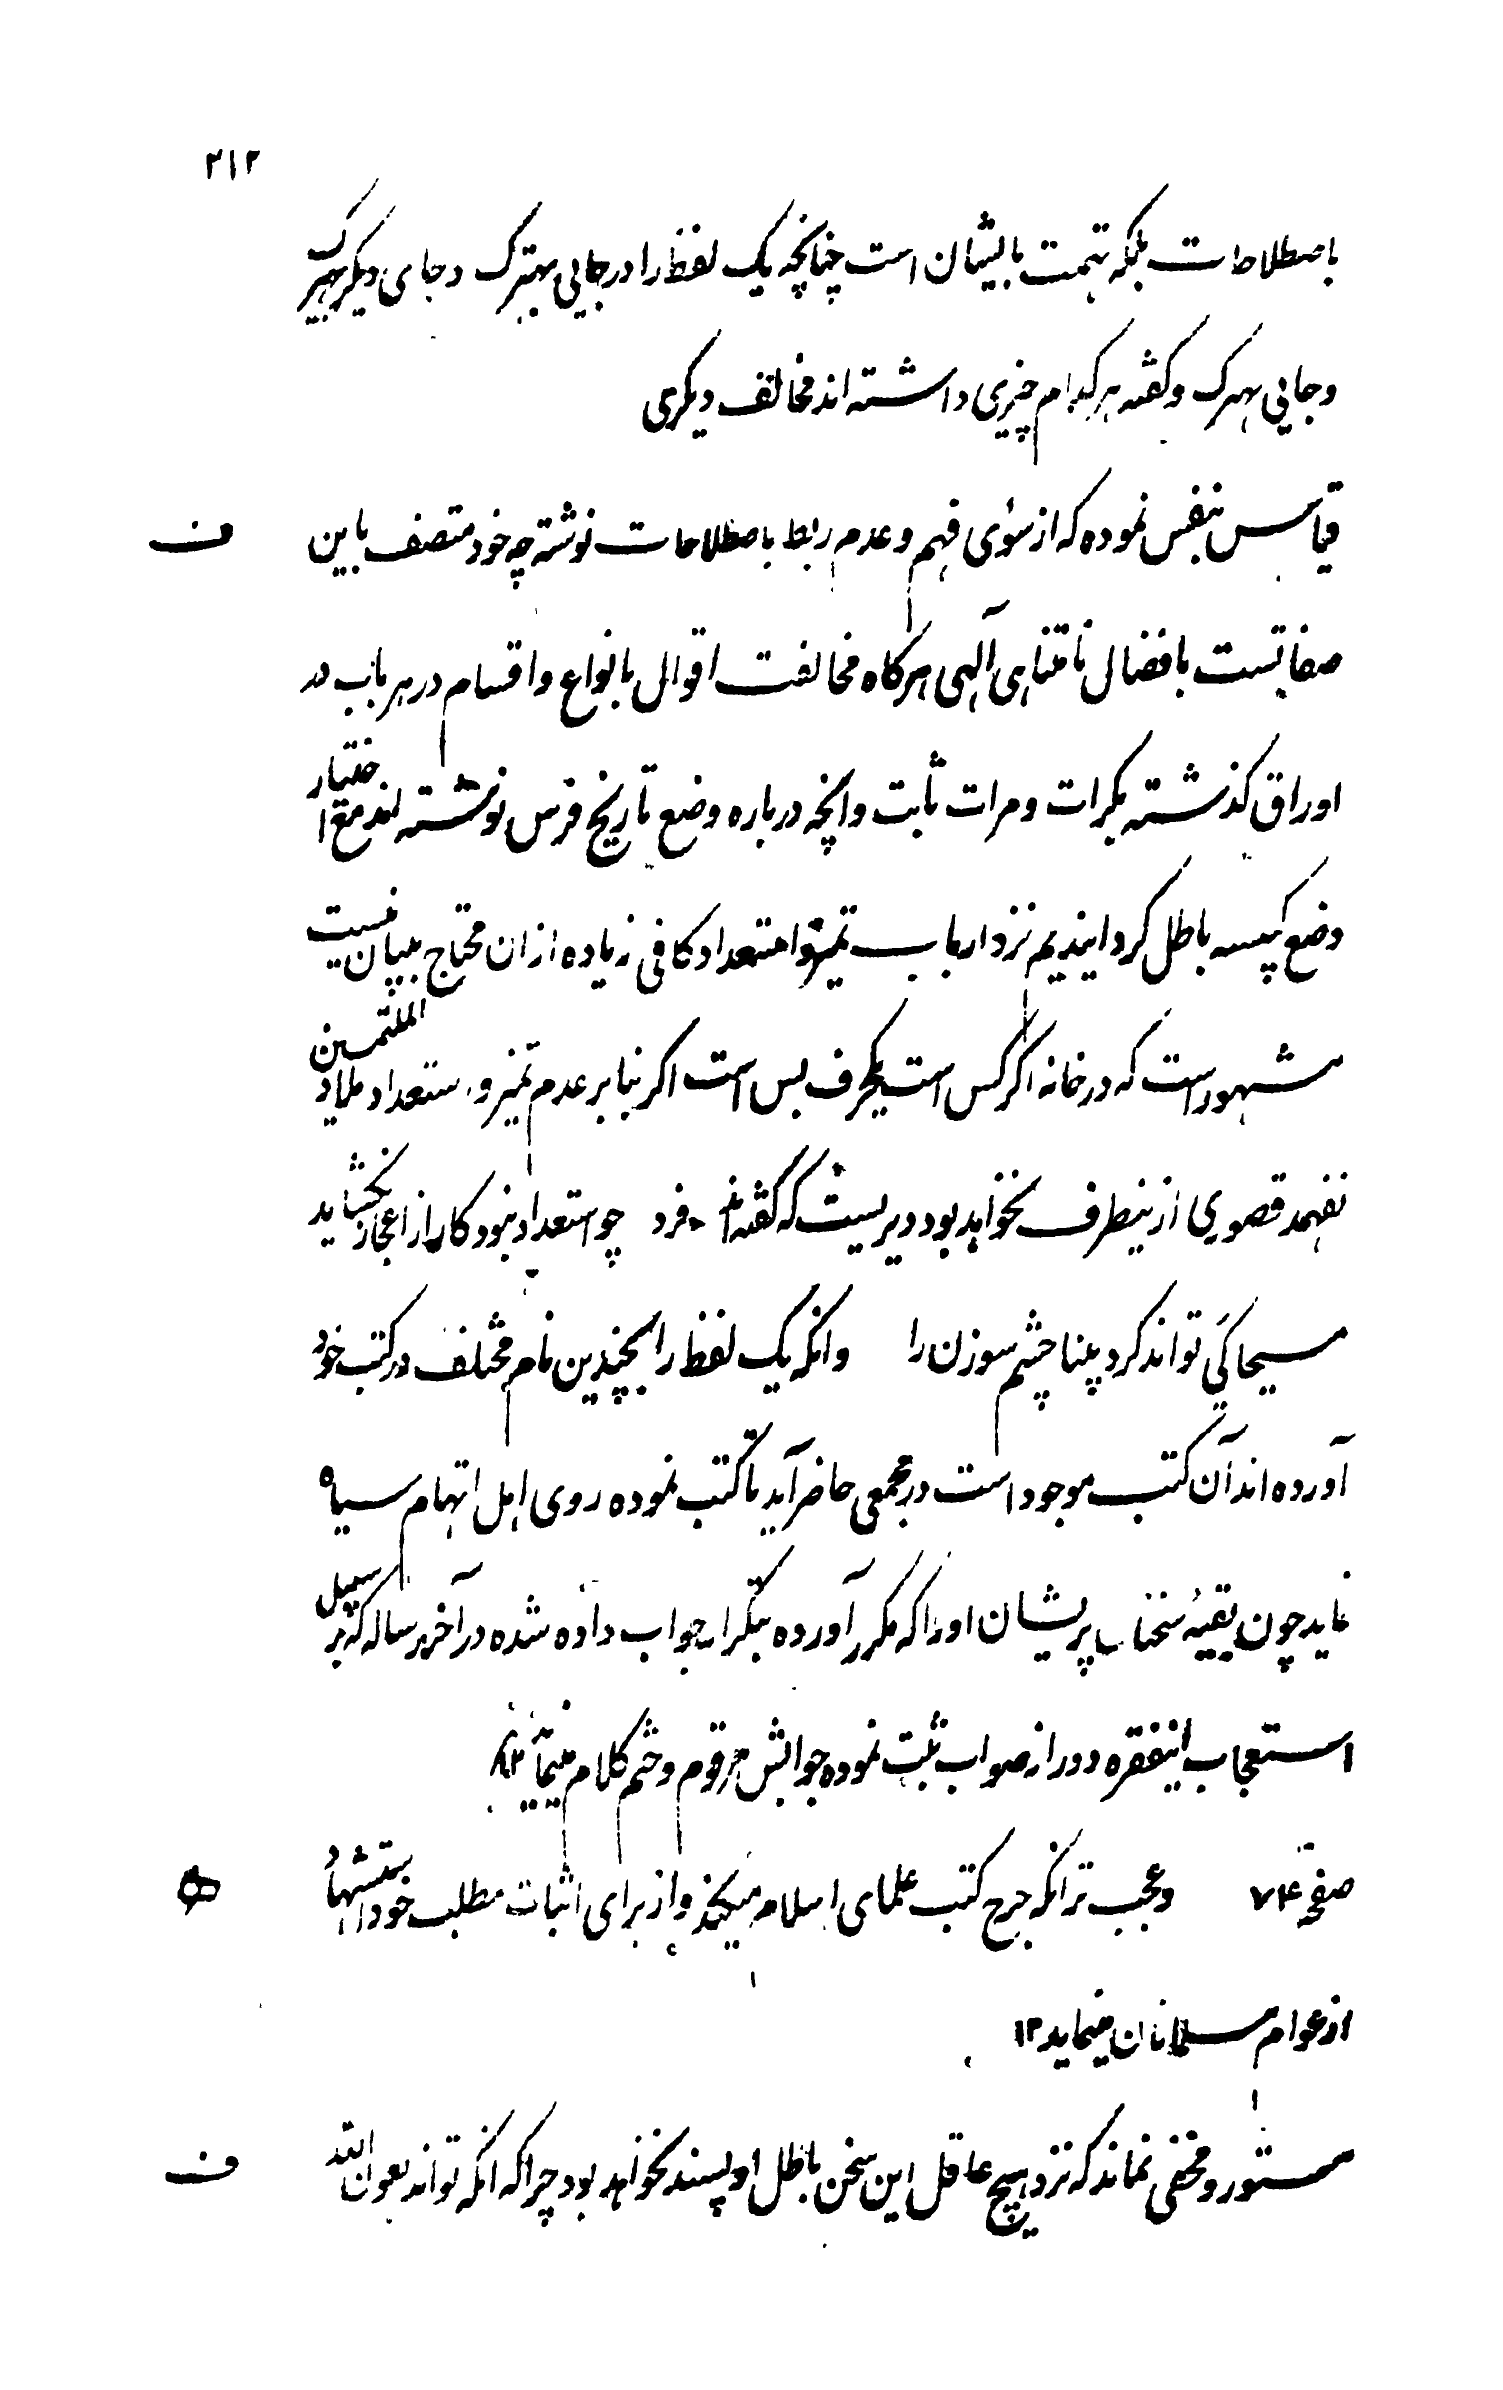 ۲۱۲
باصطلاحات بلکه تهمت بایشان است چنانچه یک لفظ را در جایی بهترک و جای دیکر بهیرک
و جایی بهرک و کفته هر کدام چیزی داشته اند مخالف دیکری
قیاس بنفس نموده که از سؤی فهم و عدم ربط باصطلاحات نوشته چه خود متصف باین ف
صفاتست بافضال نامتناهی آلهی هرکاه مخالفت اقوال بانواع و اقسام در هر باب در
اوراق کذشته بکرات و مرات ثابت و انچه درباره وضع تاریخ فرس نوشته اند مع اختیار
وضع کبیسه باطل کردانیدیم نزد ارباب تمیز و استعداد کافی زیاده از ان محتاج ببیان نیست
مشهور است که در خانه اکر کس است یکحرف بس است اکر بنا بر عدم تمیز و استعداد ملاد الملتمسین
نفهمد قصوری ازینطرف نخواهد بود دیریست که کفته اند فرد چو استعداد نبود کار از اعجاز نکشاید
مسیحا کی تواند کرد بینا چشم سوزن را وانکه یک لفظ را بچندین نام مختلف در کتب خود
آورده اند آن کتب موجود است در مجمعی حاضر آید تا کتب نموده روی اهل اتهام سیاه
نماید چون بقیهٔ سخنان پریشان او را که مکرر آورده بتکرار جواب داده شده در آخر رساله که بر سبیل
استعجاب اینفقره دور از صواب ثبت نموده جوابش مرقوم و ختم کلام مینماید
صفحه ۷۴ و عجب تر انکه جرح کتب علمای اسلام میکند و از برای اثبات مطلب خود استشهاد ه
از عوام مسلمانان مینماید ۱۲
مستور و مخفی نماند که نزد هیچ عاقل این سخن باطل او پسند نخواهد بود چرا که انکه تواند بعون الله ف